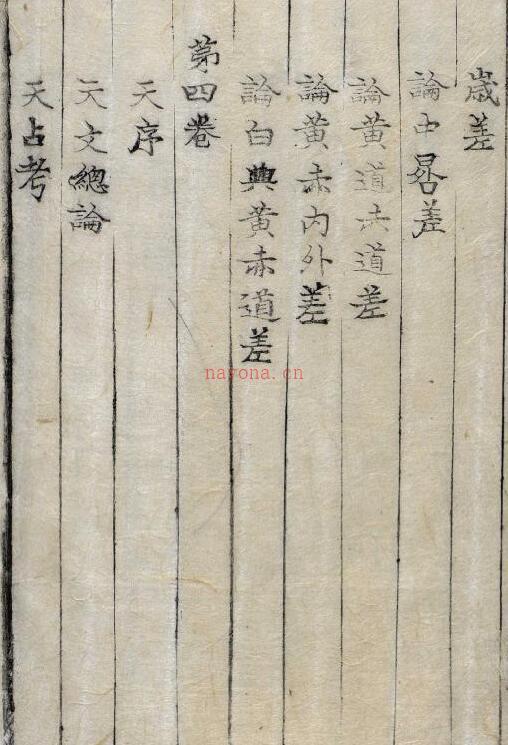 歳差
論中晷差
論黄道赤道差
論黄赤内外差
論白與黄赤道差
第四卷
天序
天文總論
天占考
nayona.cn